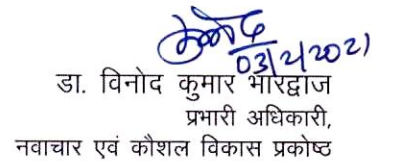 03/2/2021
डा. विनोद कुमार भारद्वाज
प्रभारी अधिकारी,
नवाचार एवं कौशल विकास प्रकोष्ठ